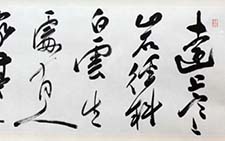 遠上寒
山石徑斜
白雲生
處有人
家